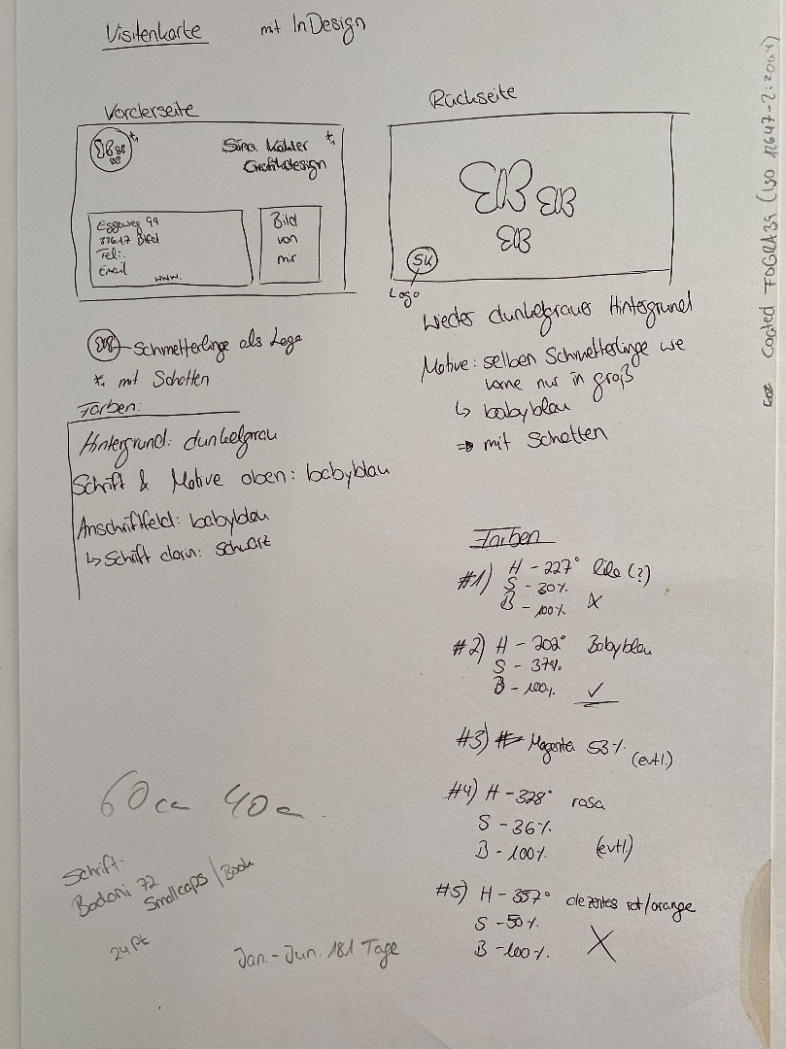 Visitenkarte mit InDesign
Vorderseite
Sina Köhler
Grafikdesign
Eggeweg 99
Tel:
Email
www.
Bild
von
mir
Schmetterlinge als Logo
*, mit Schatten
Farben:
Hintergrund: dunkelgrau
Schrift & Motive oben: babyblau
Anschriftfeld: babyblau
↳ Schrift darin: schwarz
Rückseite
SK
Logo
wieder dunkelgrauer Hintergrund
Motive: selben Schmetterlinge wie
vorne nur in groß
↳ babyblau
⇒ mit Schatten
Farben
#1) H - 227° lila (?)
S - 30%
B - 100% X
#2) H - 202° Babyblau
S - 37%
B - 100% ✓
#3) Magenta 53% (evtl.)
#4) H - 328° rosa
S - 36%
B - 100% (evtl.)
#5) H - 357° dezentes rot/orange
S - 50%
B - 100% X
60 cm 40 cm
Schrift:
Bodoni 72
Smallcaps / Book
24 Pt
Jan. - Jun. 181 Tage
Coated FOGRA39 (ISO 12647-2:2004)